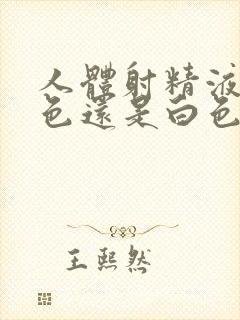 人體射精液
色還是白色
王熙然